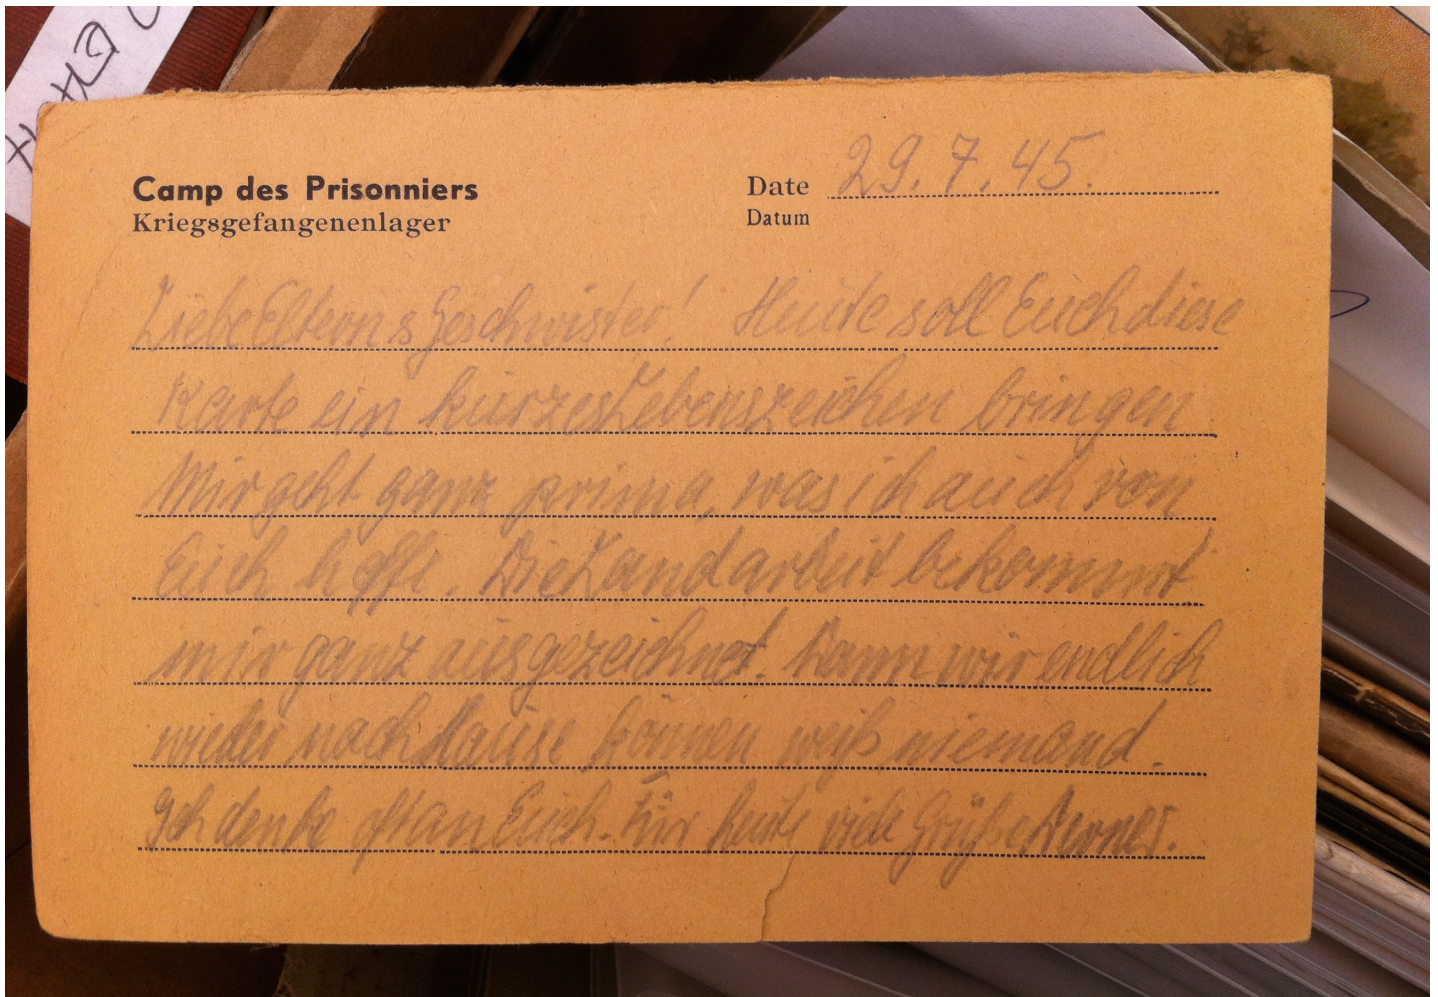 Camp des Prisonniers
Kriegsgefangenenlager
Date 29.7.45.
Datum
Liebe Eltern & Geschwister! Heute soll Euch diese
Karte ein kurzes Lebenszeichen bringen
Mir geht ganz prima, was ich auch von
Euch hoffe. Die Landarbeit bekommt
mir ganz ausgezeichnet. Wann wir endlich
wieder nach Hause können weiß niemand.
Ich denke oft an Euch. Für heute viele Grüße Werner.